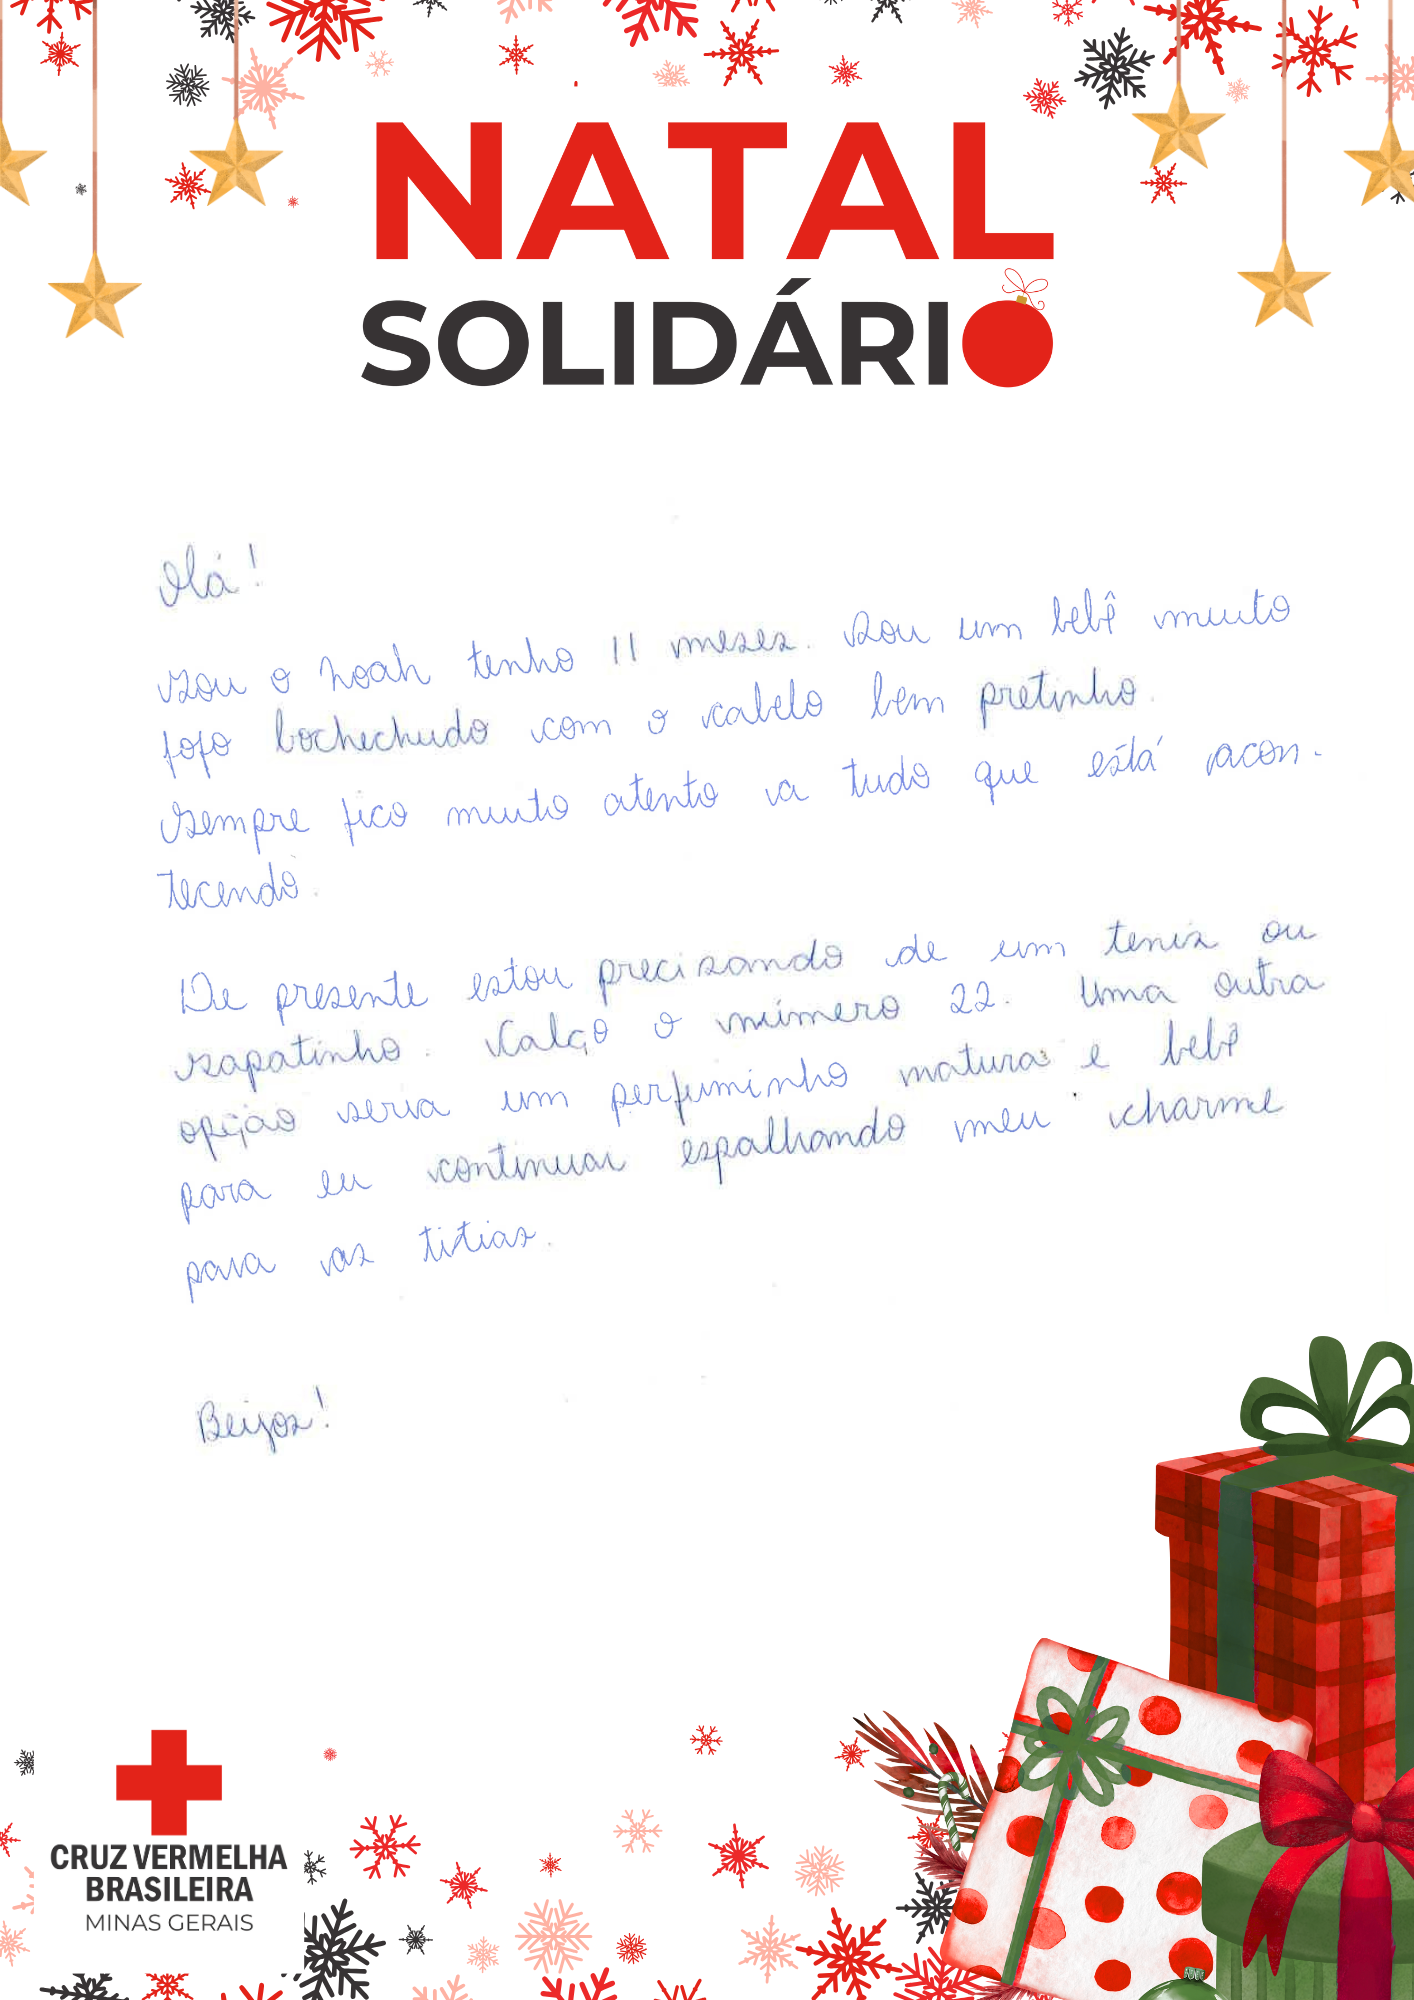 NATAL
SOLIDÁRIO
Olá!
Sou o Noah tenho 11 meses. Sou um bebê muito
fofo bochechudo com o cabelo bem pretinho.
Sempre fico muito atento a tudo que está acon-
tecendo.
De presente estou precisando de um tenis ou
sapatinho. Calço o número 22. Uma outra
opção seria um perfuminho natura e bebê
para eu continuar espalhando meu charme
para as titias.
Beijos!
CRUZ VERMELHA
BRASILEIRA
MINAS GERAIS